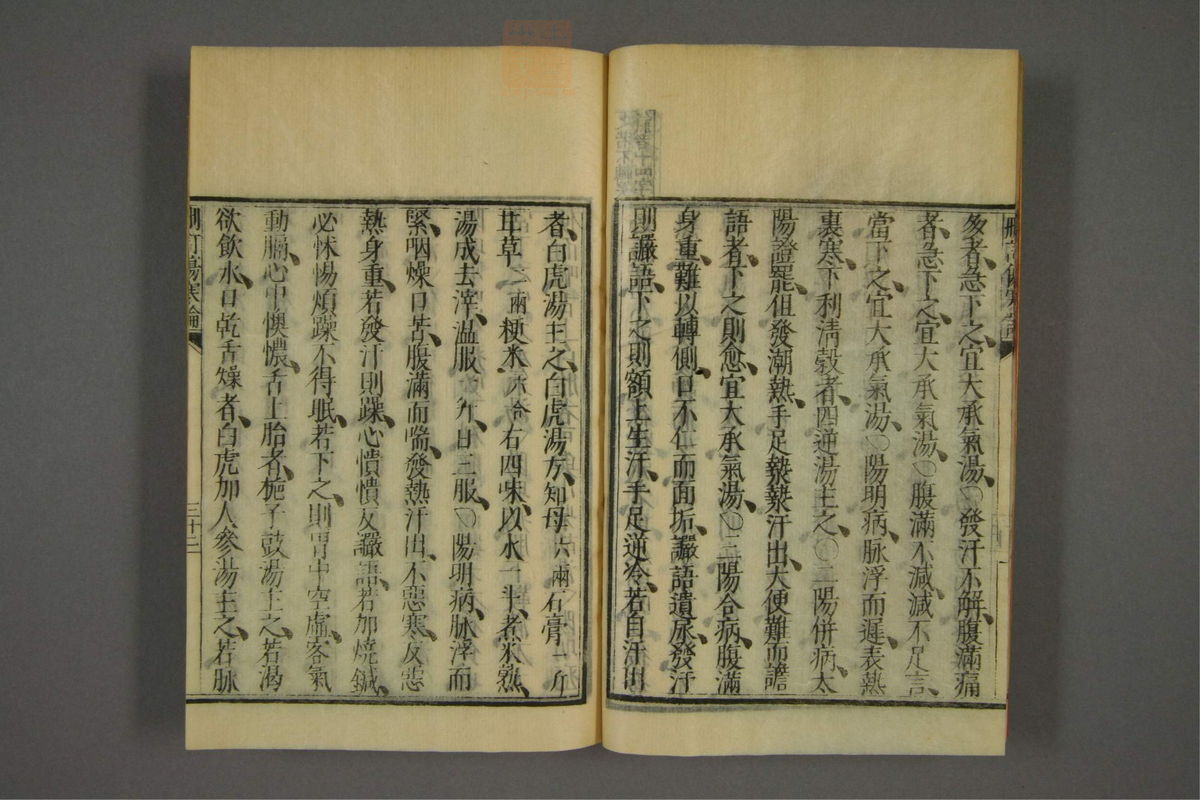 多者、急下之、宜大承氣湯、○發汗不解、腹滿痛
者、急下之、宜大承氣湯、○腹滿不減、減不足言、
當下之、宜大承氣湯、○陽明病、脉浮而遲、表熱
裏寒、下利清穀者、四逆湯主之、○二陽併病、太
陽證罷、但發潮熱、手足漐漐汗出、大便難而譫
語者、下之則愈、宜大承氣湯、○三陽合病、腹滿
身重、難以轉側、口不仁而面垢、讝語遺尿、發汗
則讝語、下之則額上生汗、手足逆冷、若自汗出
者、白虎湯主之、白虎湯方、知母六兩石膏一斤
甘草二兩粳米六合右四味、以水一斗、煮米熟、
湯成去滓、温服一升、日三服、○陽明病、脉浮而
緊、咽燥口苦、腹滿而喘、發熱汗出、不惡寒、反惡
熱身重、若發汗則躁、心憒憒反讝語、若加燒鍼、
必怵惕煩躁不得眠、若下之、則胃中空虛、客氣
動膈、心中懊憹、舌上胎者、梔子鼓湯主之、若渴
欲飲水、口乾舌燥者、白虎加人參湯主之、若脉
刪訂傷寒論
三十二